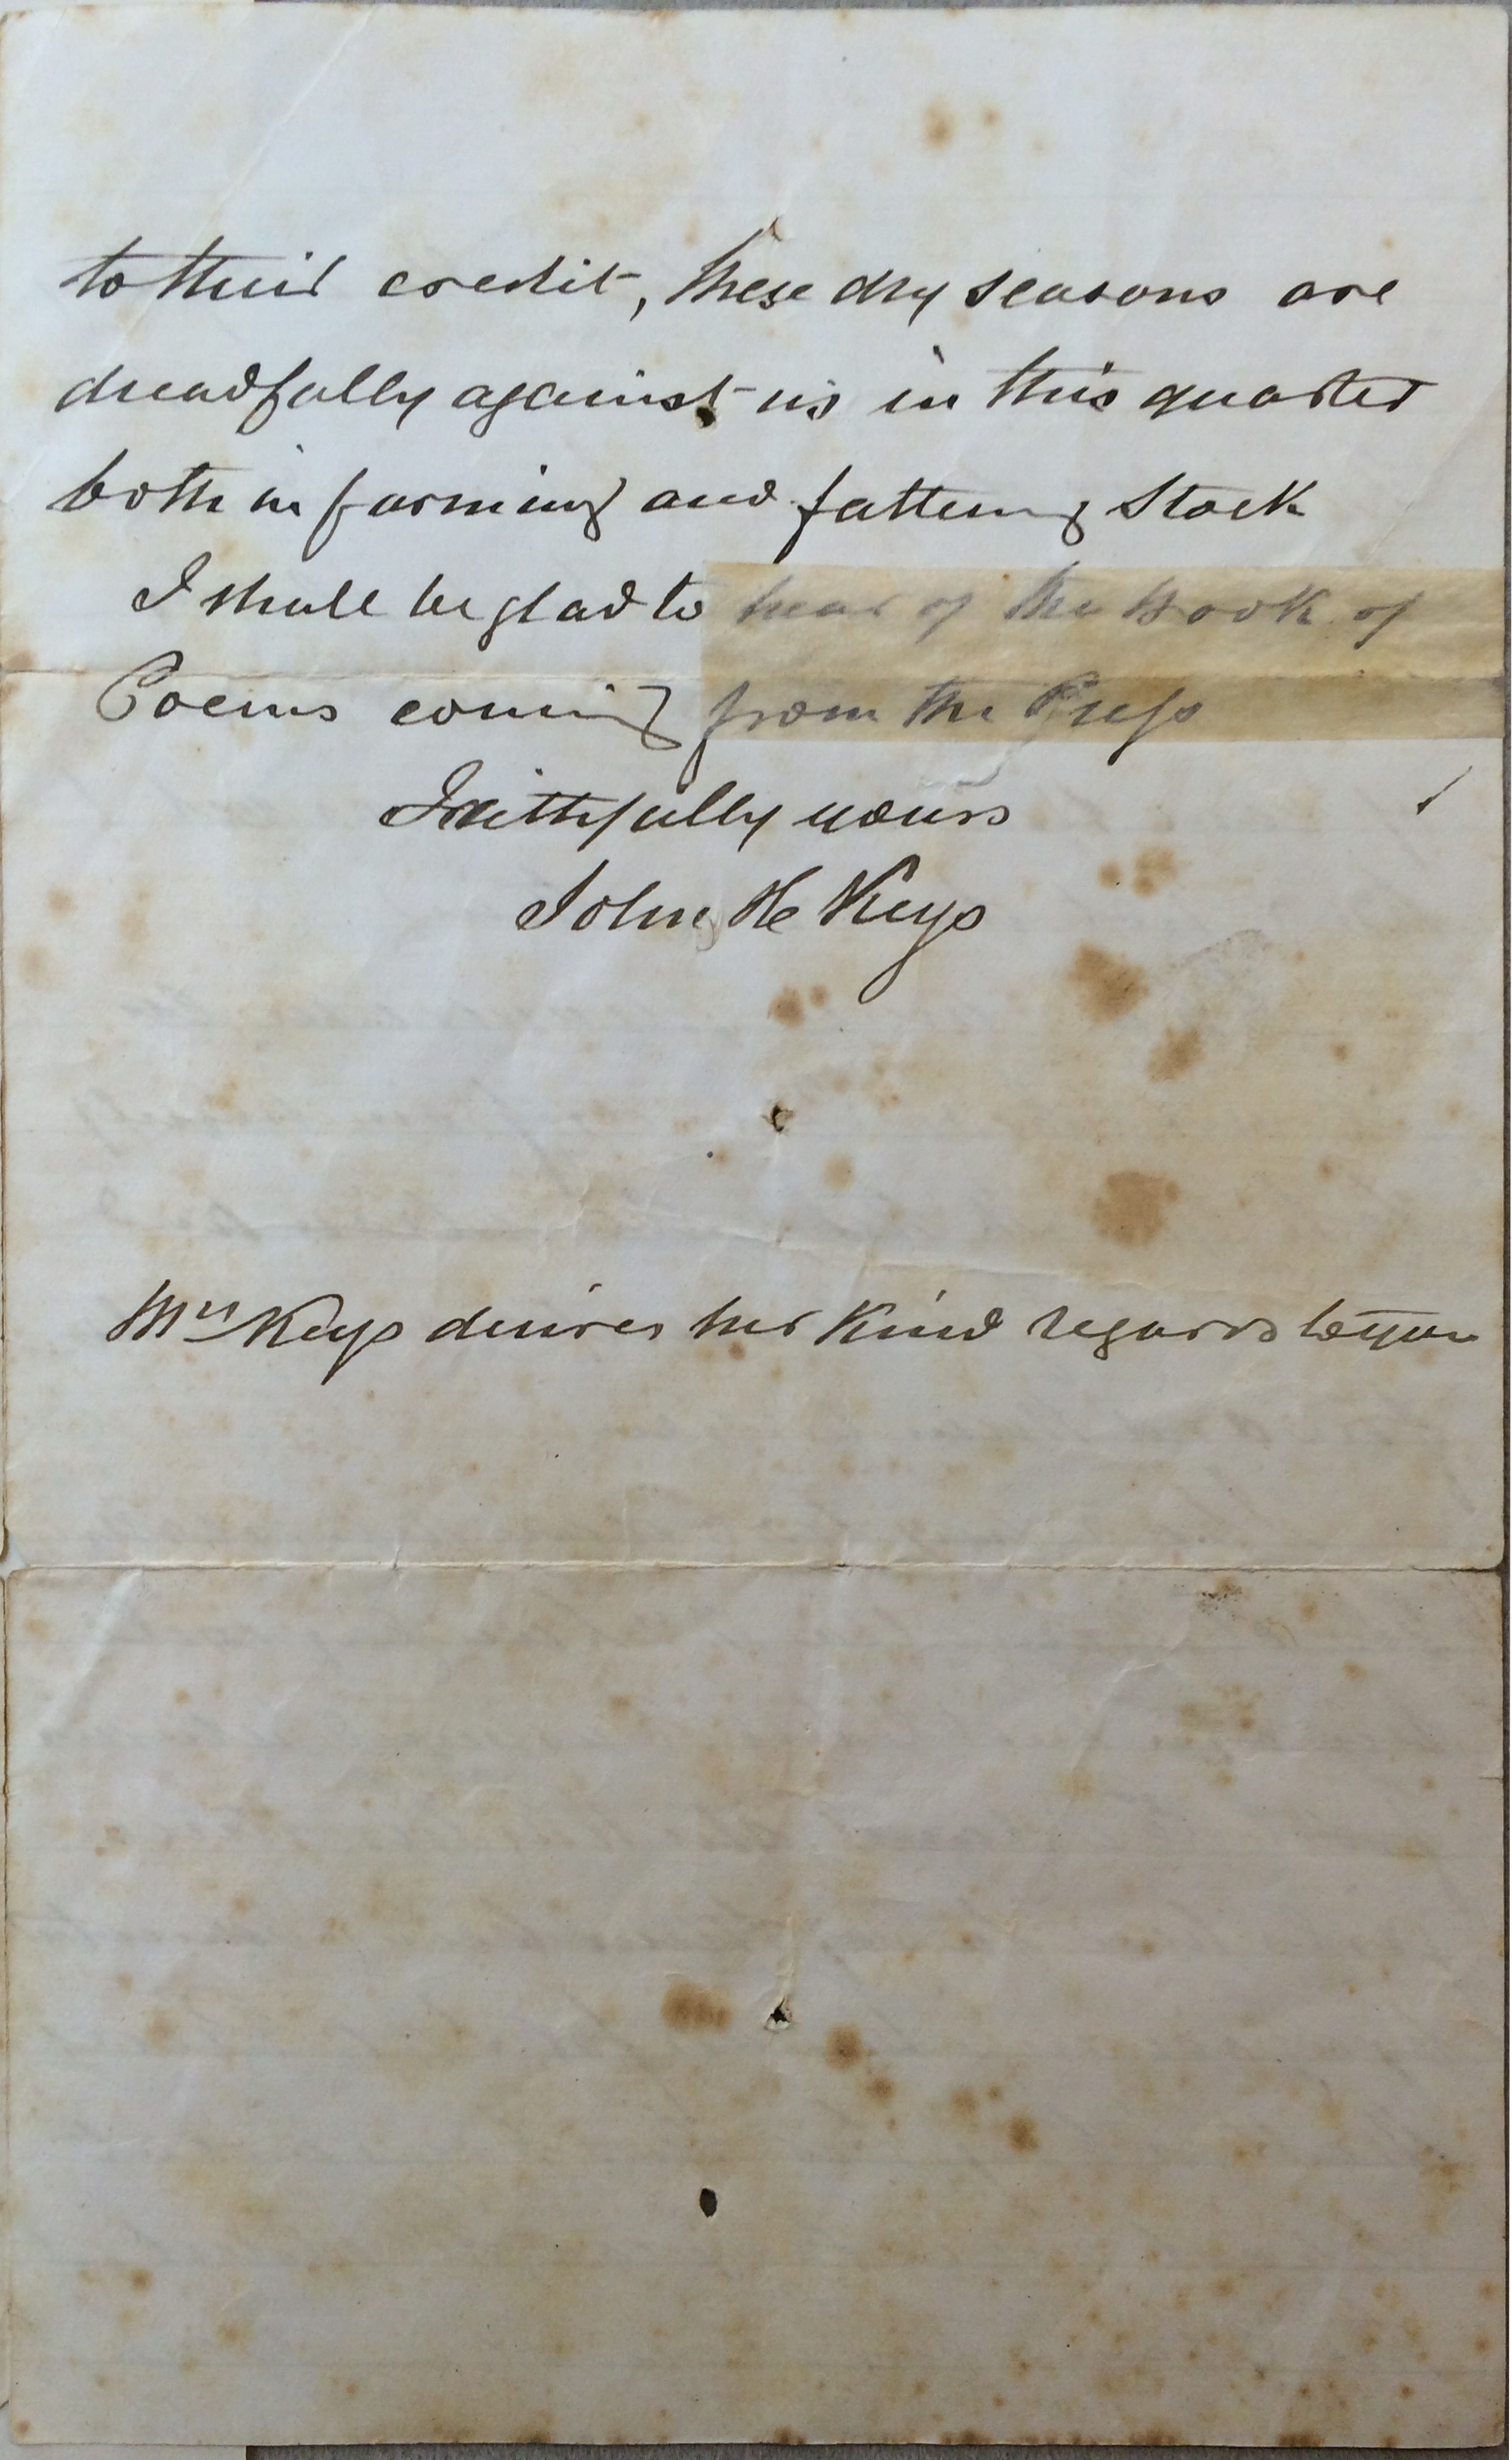 to their credit, these dry seasons are
dreadfully against us in this quarter
both in farming and fattening Stock
I shall be glad to hear of the Book of
Poems coming from the Press
Faithfully yours
John H Keys
Mrs Keys desires her Kind regards to you